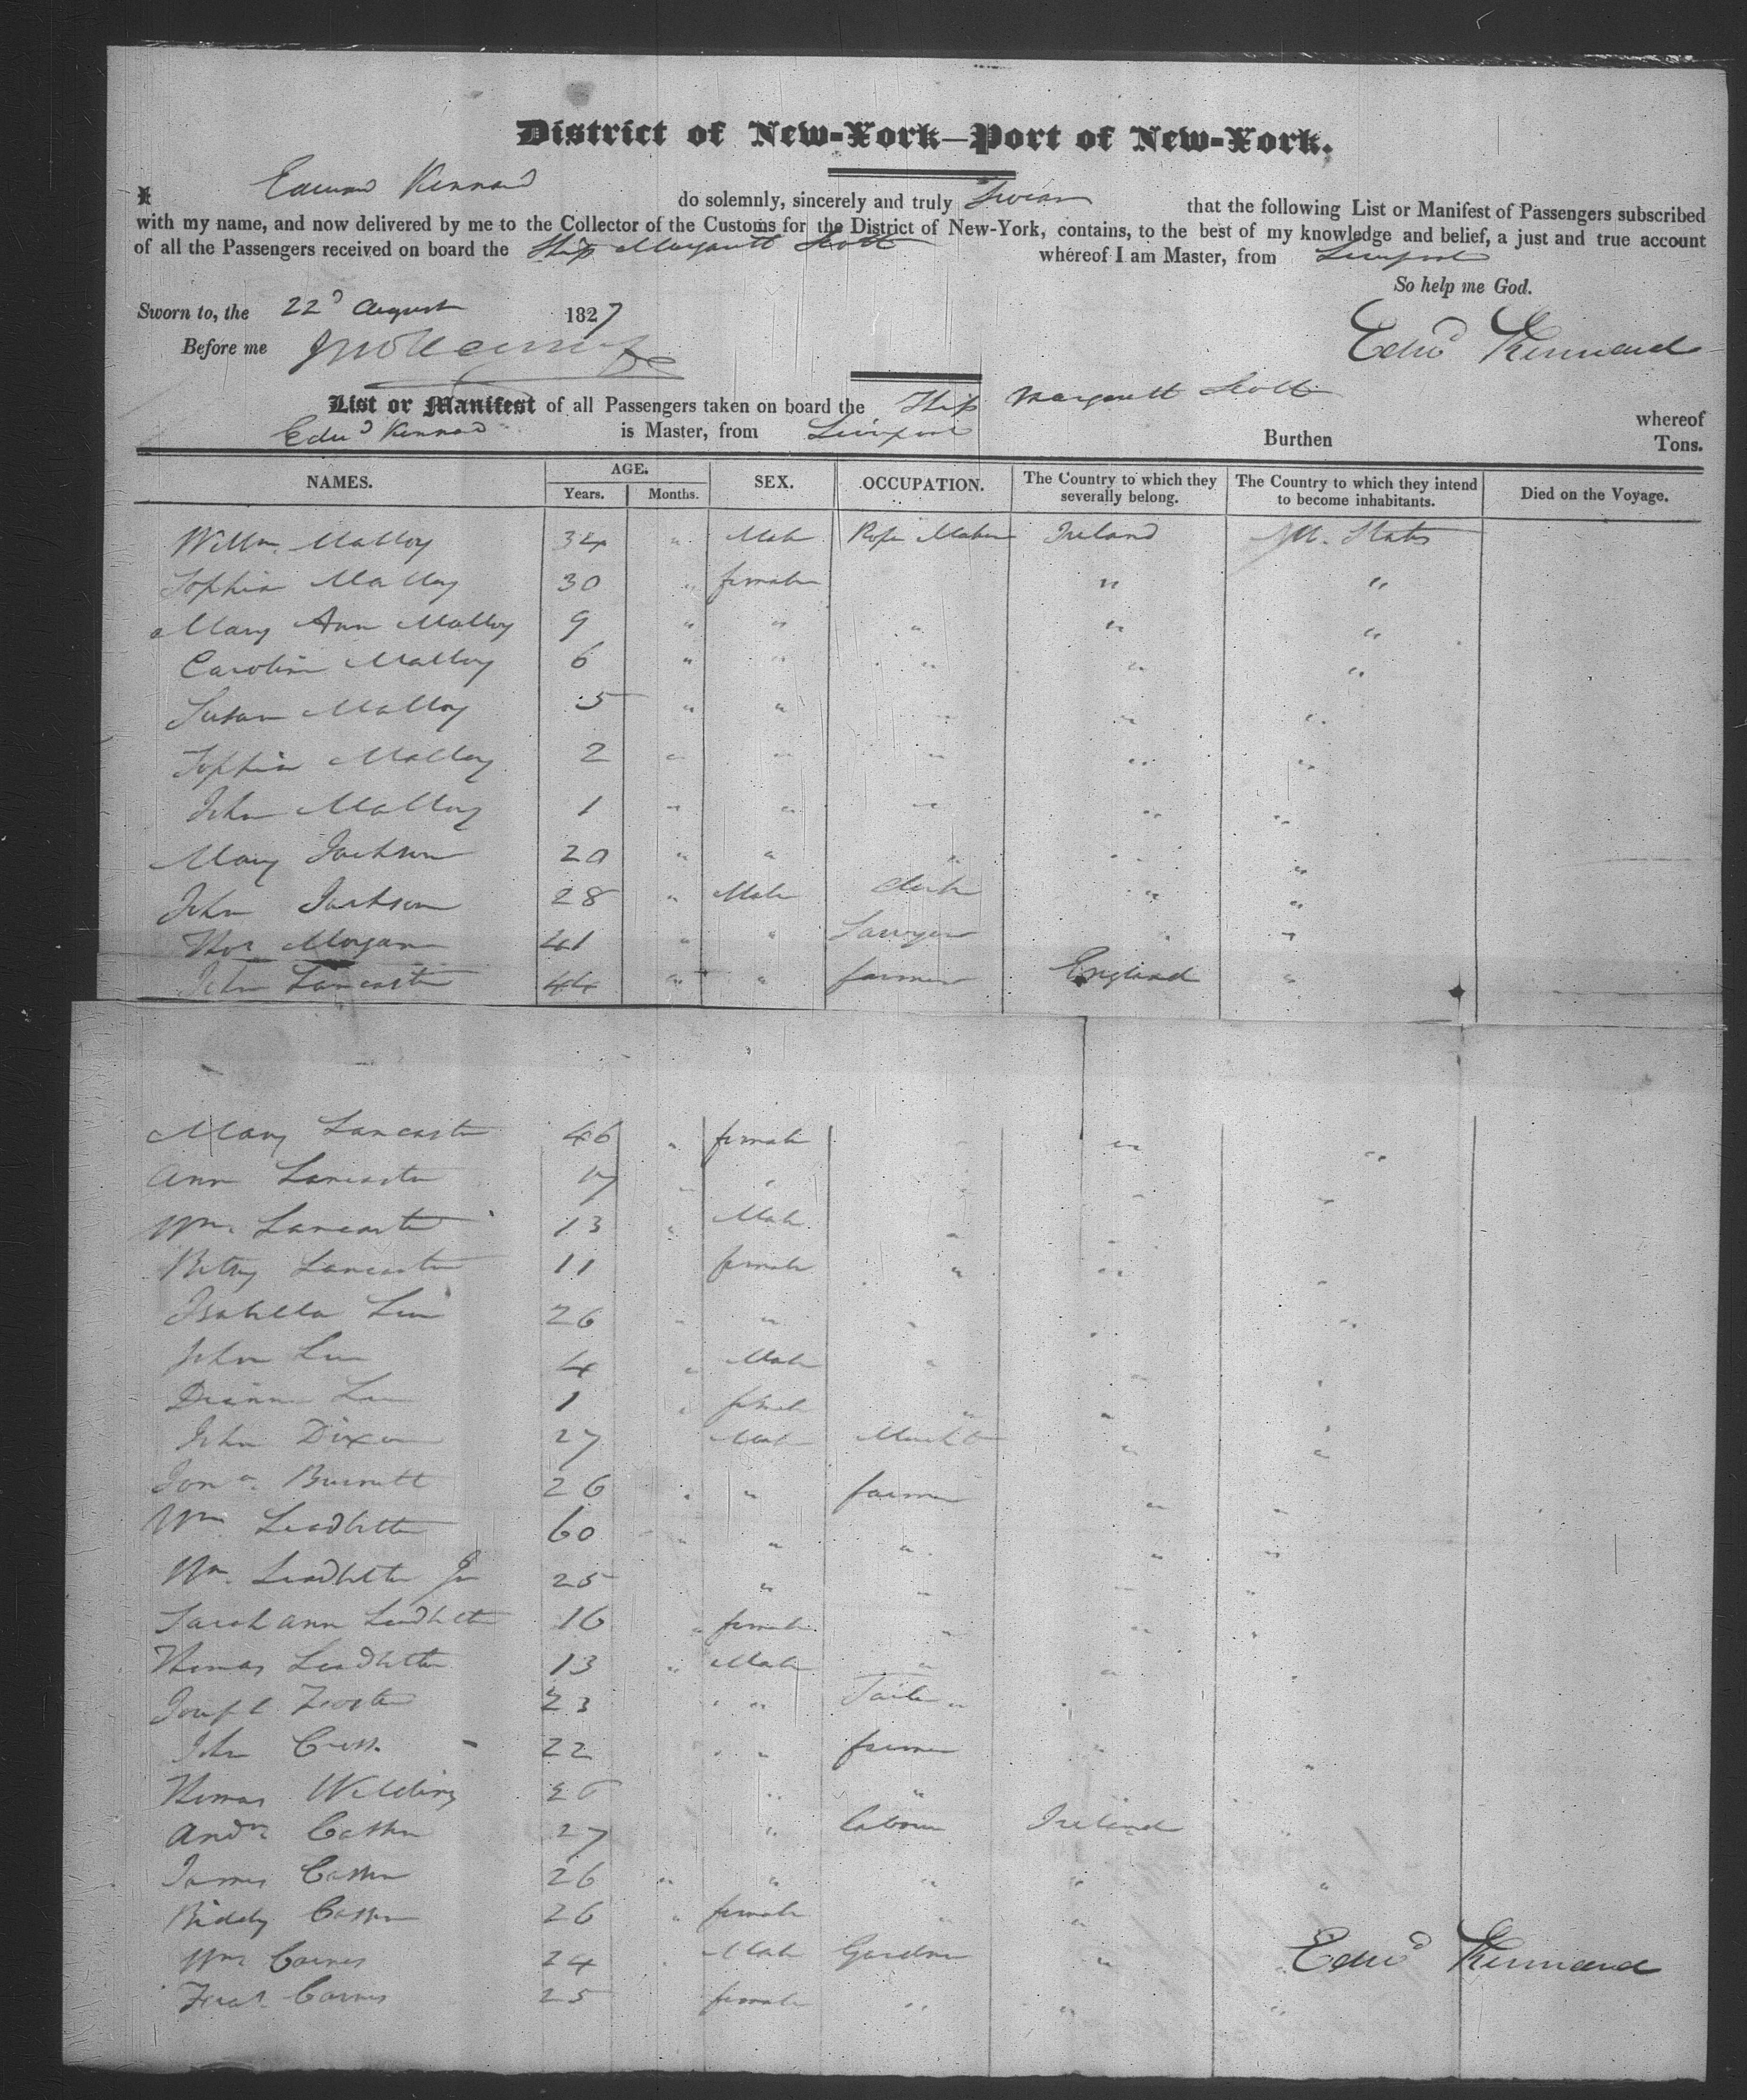 District of New-York—Port of New-York.
I Edward Kennard do solemnly, sincerely and truly Swear that the following List or Manifest of Passengers subscribed
with my name, and now delivered by me to the Collector of the Customs for the District of New-York, contains, to the best of my knowledge and belief, a just and true account
of all the Passengers received on board the Ship Margarett Scott whereof I am Master, from Liverpool
So help me God.
Sworn to, the 22d August 1827
Before me
Edwd Kennard
List or Manifest of all Passengers taken on board the Ship Margarett Scott whereof
Edwd Kennard is Master, from Liverpool Burthen Tons.
NAMES. AGE. Years. Months. SEX. OCCUPATION. The Country to which they severally belong. The Country to which they intend to become inhabitants. Died on the Voyage.
Willm. Malloy 34 " Male Rope Maker Ireland U. States
Sophia Malloy 30 " female " "
Mary Ann Malloy 9 " " " " "
Caroline Malloy 6 " " " " "
Susan Malloy 5 " " " " "
Sophia Malloy 2 " " " " "
John Malloy 1 " " " " "
Mary Jackson 20 " " " " "
John Jackson 28 " Male Clerk " "
Thos Morgan 41 " " Sawyer " "
John Lancaster 44 " " farmer England "
Mary Lancaster 46 " female " "
Ann Lancaster 17 " " " "
Wm. Lancaster 13 " Male " " "
Betsy Lancaster 11 female " " "
Isabella Lee 26 " " " " "
John Lee 4 " Male " " "
Lee 1 " female " " "
John Dixon 27 Male " "
Jona. Burnett 26 " " farmer " "
Wm Leadbetter 60 " " " " "
Wm. Leadbetter Jr 25 " " " "
Sarah Ann Leadbetter 16 " female " " "
Thomas Leadbetter 13 " Male " " "
Joseph 23 " " Tailor "
John Cross 22 " " farmer " "
Thomas Welding 26 " " "
Andw 27 " Labourer Ireland "
James 26 " " " " "
Biddy 26 " female " "
Wm Carnes 24 " Male Gardner " "
Carnes 25 female " " "
Edwd Kennard